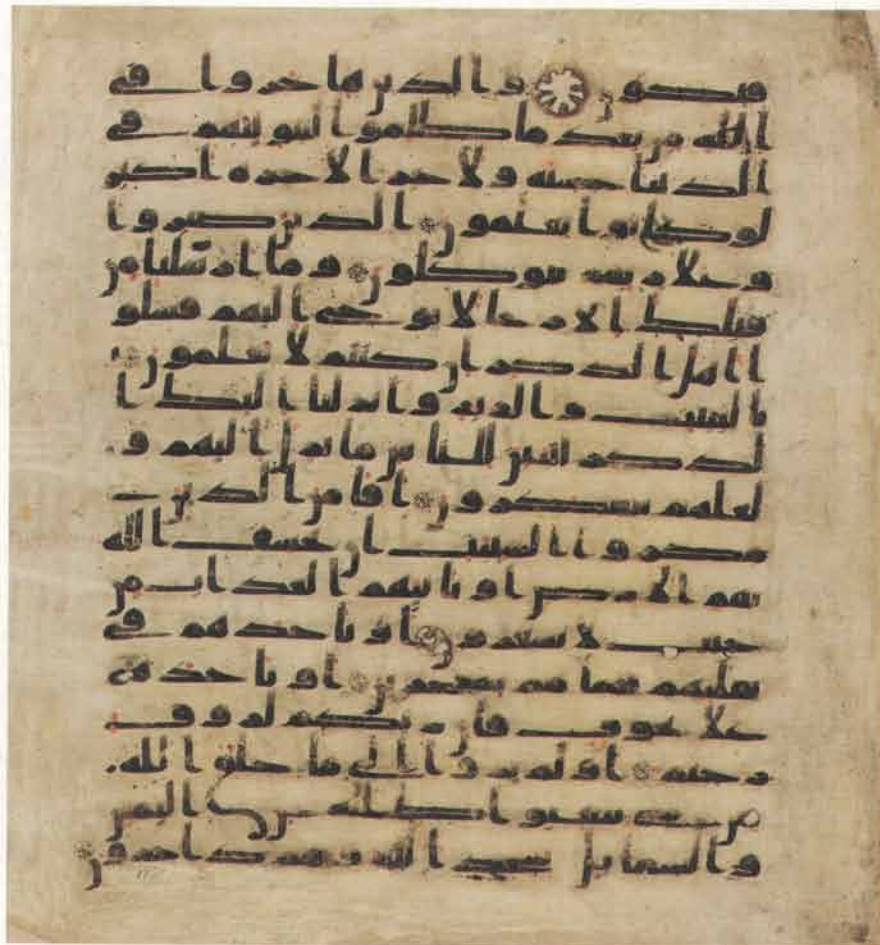 فيكون والذين هاجروا في
الله من بعد ما ظلموا لنبوينهم في
الدنيا حسنة ولاجر الاخرة اكبر
لو كانوا يعلمون الذين صبروا
وعلا ربهم يتوكلون وما ارسلنا من
قبلك الا رجالا نوحي اليهم فسلو
ا اهل الذكر ان كنتم لا تعلمون
بالبينت والزبر وانزلنا اليك ا
لذكر لتبين للناس ما نزل اليهم و
لعلهم يتفكرون افامن الذين
مكروا السيات ان يخسف الله
بهم الارض او ياتيهم العذاب من
حيث لا يشعرون او ياخذهم في
تقلبهم فما هم بمعجزين او ياخذهم
علا تخوف فان ربكم لروف
رحيم اولم يروا الى ما خلق الله
من شي يتفيوا ظلله عن اليمين
والشمايل سجدا لله وهم داخرون